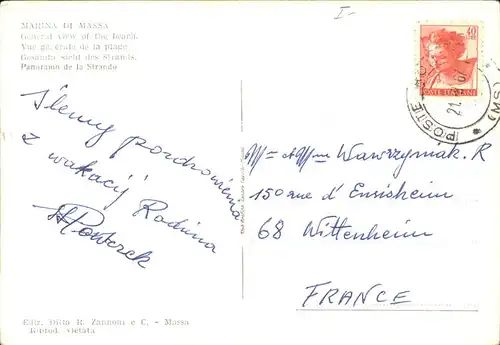 MARINA DI MASSA
General view of the beach.
Vue générale de la plage.
Gesamta sicht des Strands.
Panorama de la Strando
I-
40
POSTE ITALIANE
POSTE
21.
(MS)
Ślemy pozdrowienia
z wakacji Rodzina
Mr = Mme Wawrzyniak. R
150 rue d'Ensisheim
68 Wittenheim
FRANCE
Ediz. Ditta R. Zannoni e C. - Massa
Riprod. vietata